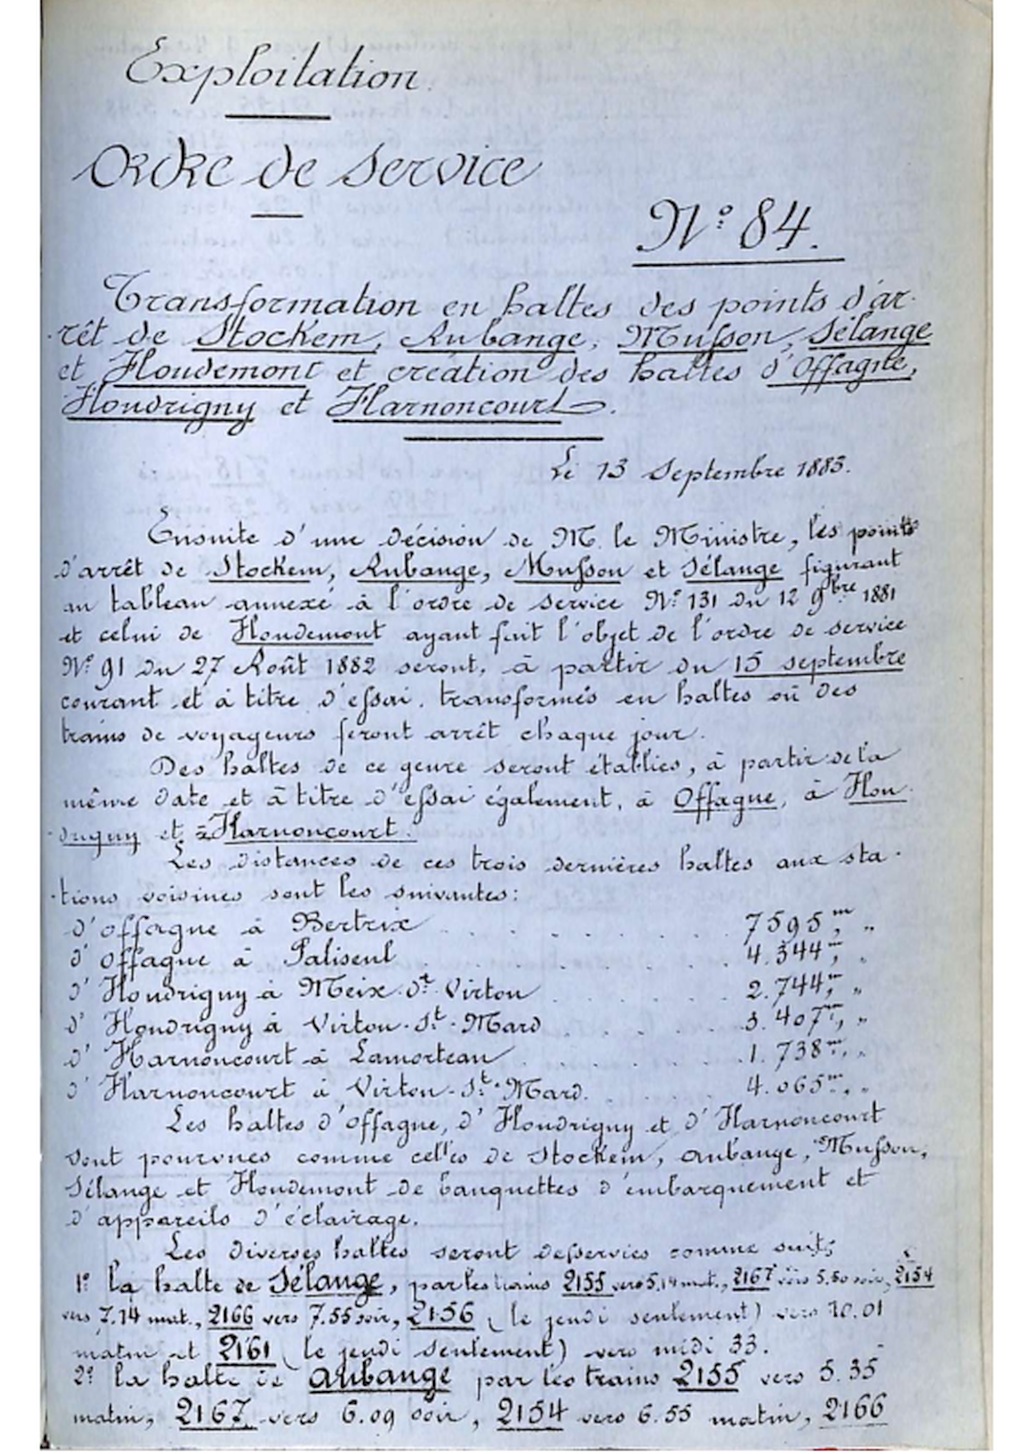 Exploitation.
Ordre de Service
N° 84.
Transformation en haltes des points d'ar-
-rêt de Stockem, Aubange, Musson, Sélange
et Houdemont et création des haltes d'Offagne,
Houdrigny et Harnoncourt.
Le 13 Septembre 1883.
Ensuite d'une décision de M. le Ministre, les points
d'arrêt de Stockem, Aubange, Musson et Sélange figurant
au tableau annexé à l'ordre de service N° 131 du 12 9bre 1881
et celui de Houdemont ayant fait l'objet de l'ordre de service
N° 91 du 27 Août 1882 seront, à partir du 15 septembre
courant et à titre d'essai, transformés en haltes où des
trains de voyageurs feront arrêt chaque jour.
Des haltes de ce genre seront établies, à partir de la
même date et à titre d'essai également, à Offagne, à Hou-
-drigny et à Harnoncourt.
Les distances de ces trois dernières haltes aux sta-
-tions voisines sont les suivantes:
d'Offagne à Bertrix . . . . . . 7595,m "
d'Offagne à Paliseul . . . . . . 4.344,m "
d'Houdrigny à Meix-dt-Virton . . . . . 2.744,m "
d'Houdrigny à Virton-St-Mard . . . . 3.407m, "
d'Harnoncourt à Lamorteau . . . . . 1.738m, "
d'Harnoncourt à Virton-St-Mard. . . . . 4.065m, "
Les haltes d'Offagne, d'Houdrigny et d'Harnoncourt
sont pourvues comme celles de Stockem, Aubange, Musson,
Sélange et Houdemont de banquettes d'embarquement et
d'appareils d'éclairage.
Les diverses haltes seront desservies comme suit:
1° la halte de Sélange, par les trains 2155 vers 5.14 mat., 2167 vers 5.50 soir, 2154
vers 7.14 mat., 2166 vers 7.55 soir, 2156 (le jeudi seulement) vers 10.01
matin et 2161 (le jeudi seulement) vers midi 33.
2° la halte de Aubange par les trains 2155 vers 5.35
matin, 2167 vers 6.09 soir, 2154 vers 6.55 matin, 2166